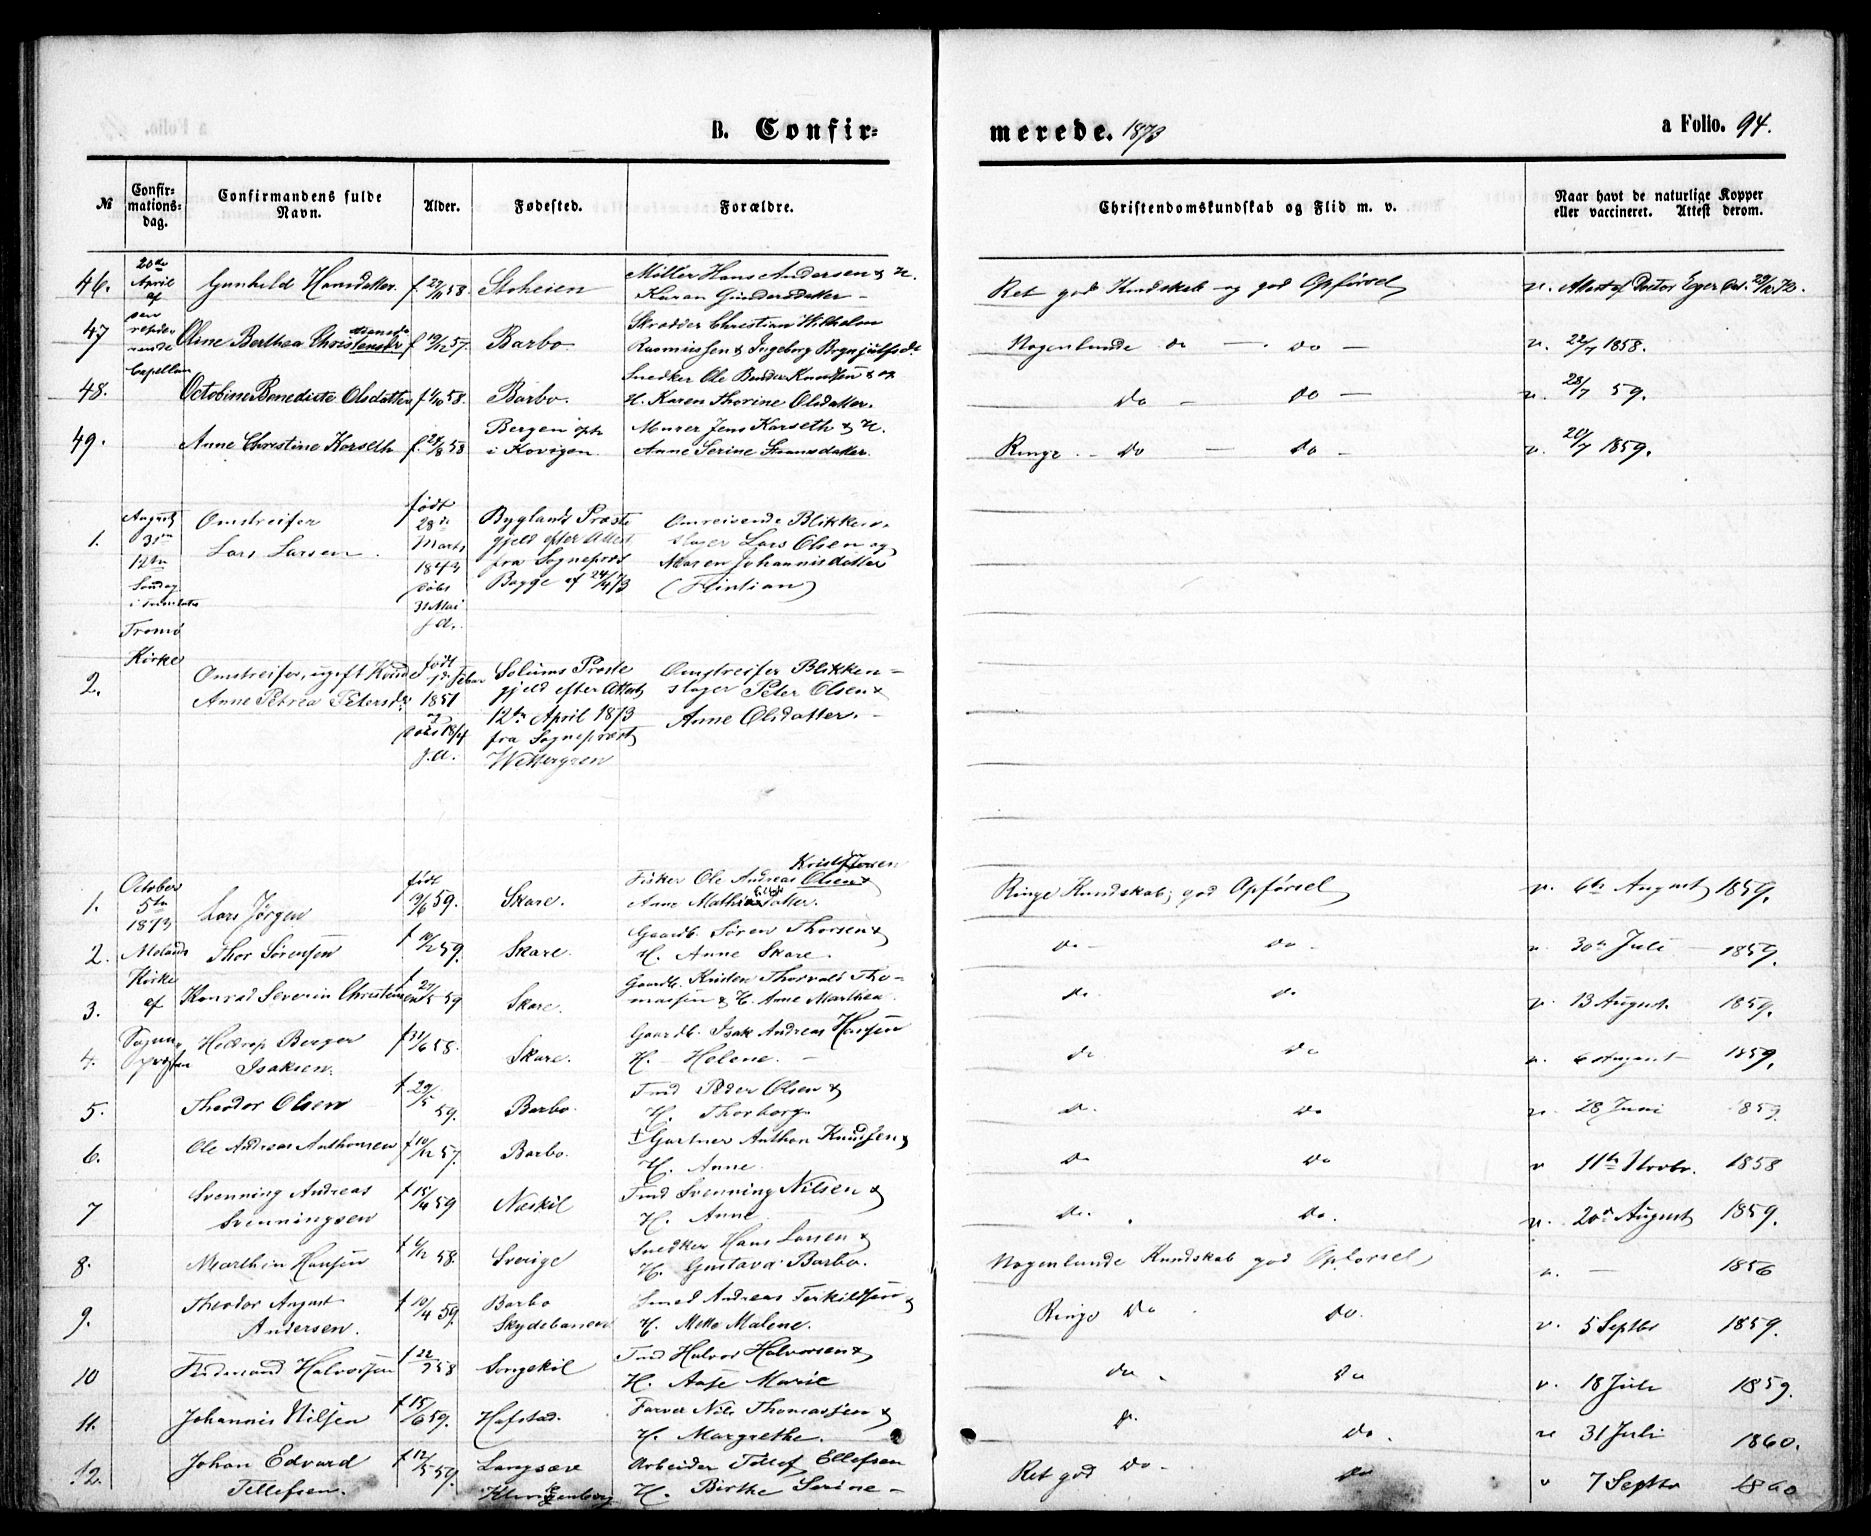 B. Confir=
merede. 1873
a Folio. 94.
№
Confir=
mations=
dag.
Confirmandens fulde
Navn.
Alder.
Fødested.
Forældre.
Christendomskundskab og Flid m. v.
Naar havt de naturlige Kopper
eller vaccineret. Attest derom.
46.
20de
April
af
Gunhild Hansdatter
Stoheien
Møller Hans Andersen & H.
Karen Gundersdatter -
Ret god Kundskab og god Opførsel
47
Capellan
Oline Berthea
Barbo
Skrædder Christian Wilhelm
Rasmussen & Ingeborg
Nogenlunde do - do -
v. 22/7 1858.
48.
Octobine Benedicte Olsdatter
Barbo.
Snedker Ole
H. Karen Thorine Olsdatter.
do - do -
v. 28/7 59.
49.
Anne Christine Korseth
f. 58
Bergen
i Kovigen
Murer Jens Korseth & H.
Anne Serine
Ringe - do - do -
v. 20/7 1859.
1.
August
31te
12te
Søndag
Tromø
Kirke
Omstreifer
Lars Larsen.
født
28de
Marts
1843
døbt
31 Mai
s. a.
Byglands Præste
gjeld efter Attest
fra Sognepræst
Bugge af 24/4 73
Omreisende Blikken-
slager Lars Olsen og
Maren Johannisdatter
(Flintian)
2.
Omstreifer, ugift Kvinde
Anne Petrea Petersdr
født
1851
og
døbt 18/4
s. a.
Solums Præste
gjeld efter Attest
12te April 1873
fra Sognepræst
Wettergren
Omstreifer Blikken-
slager Peter Olsen &
Anne Olsdatter. -
1.
October
5te
1873
Lars Jørgen
født
19/6 59.
Skare.
Fisker Ole Andreas Olsen &
Ringe Kundskab, god Opførsel
v. 6te August 1859.
2.
Molands
Thor Sørensen
Skare.
Gaardb. Søren Thorsen &
H. Anne Skare.
do - do -
v. 30te Juli - 1859.
3.
Kirke
af
Konrad Severin Christensen
Skare.
Gaardb. Kristen Thorvald Tho-
massen & H. Anne Marthea.
do. do
v. 13 August 1859.
4.
Sogne-
præsten
Berger
Isaksen.
Skare.
Gaardb. Isak Andreas Hansen
H. - Helene. -
do do
v. 6 August - 1859.
5.
Theodor Olsen
f 29/5 59.
Barbo.
Tmd Peder Olsen &
H. Thorborg
do. do
v. 28 Juni 1859
6.
Ole Andreas Anthonsen
f 10/12 57.
Barbo.
Gartner Anthon Knudsen &
H. Anne.
do do
v 11te Novbr. 1858
7
Svenning Andreas
Svenningsen
f 15/4 59
Næskil
Tmd Svenning Nilsen &
H. Anne
do. do.
v. 20de August 1859.
8.
Marthin Hansen
58.
Sverige
Snedker Hans Larsen &
H. Gustava Barbo.
Nogenlunde Kundskab god Opførsel
v. - 1856
9.
Theodor August
Andersen.
f 10/4 59.
Barbo
Skydebanen
Smed Andreas Terkildsen &
H. Mette Malene.
Ringe do do.
v. 5 Septbr 1859.
10
Ferdinand Halvorsen
f 22/7 58
Songekil
Tmd Halvor Halvorsen &
H. Aase Marie
do. do
v. 18 Juli 1859.
11.
Johannis Nilsen
f 15/6 59.
Hafstad.
Farver Nils Thomassen &
H. Margrethe.
do. do.
v. 31 Juli 1860.
12.
Johan Edvard
Tellefsen.
f 12/5 59.
Langsæe
Arbeider Tellef Ellefsen
H. Birthe Serine -
Ret god do - do
v 7 Septbr 1860